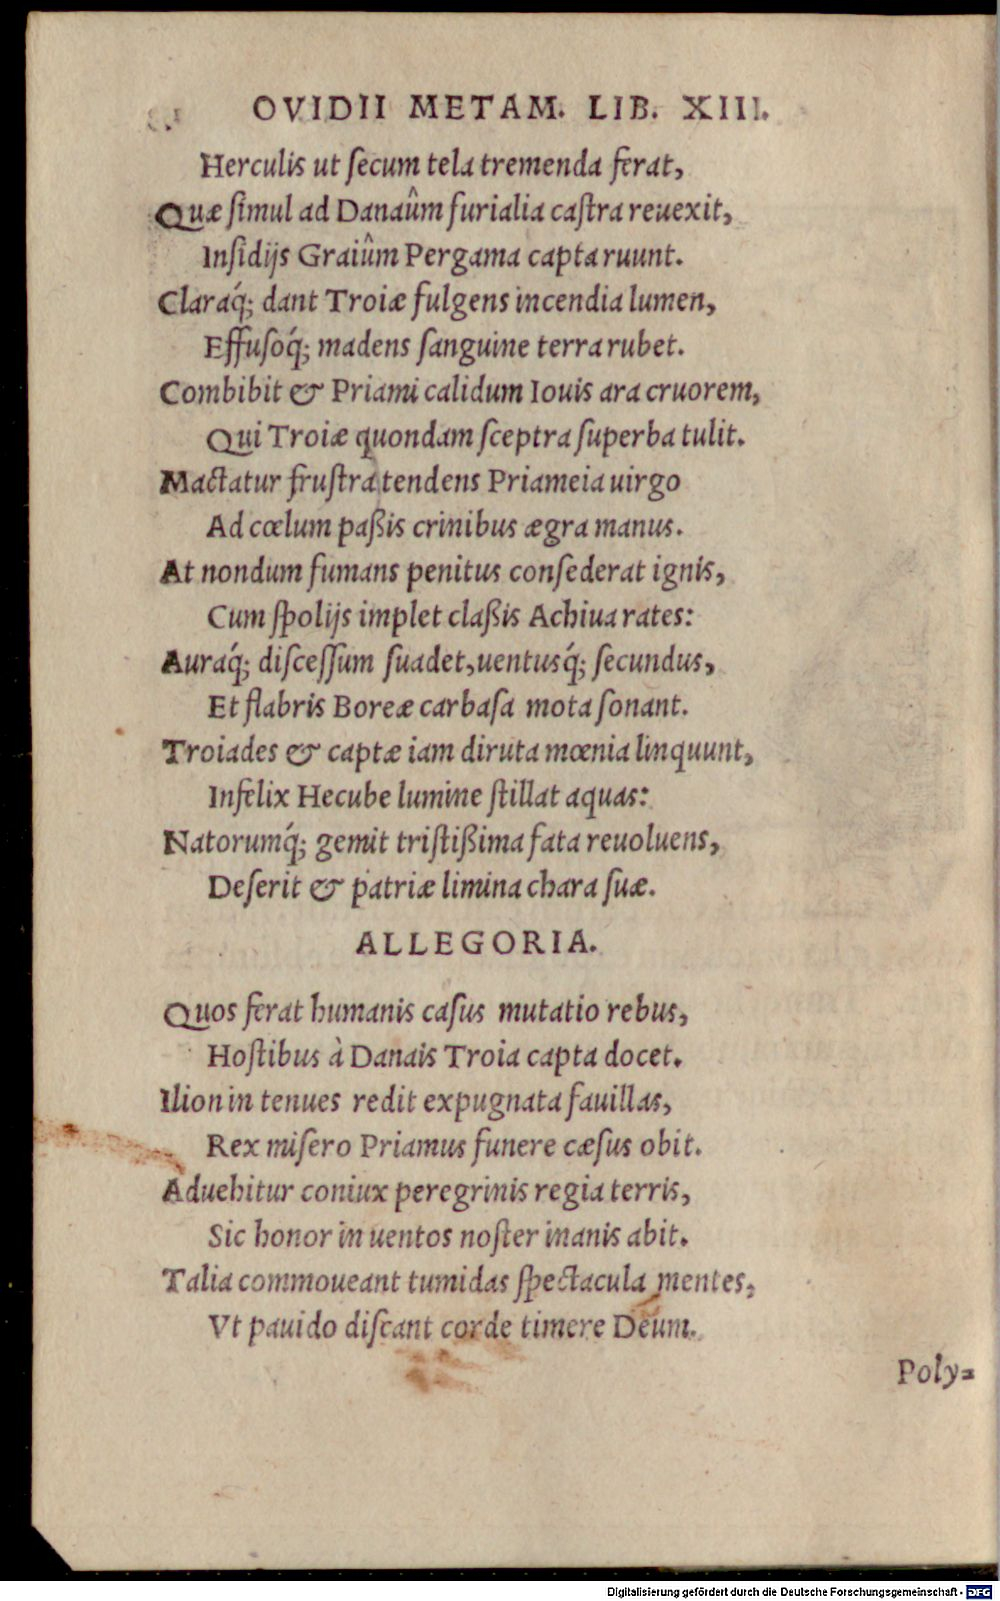 OVIDII METAM. LIB. XIII.
Herculis ut ſecum tela tremenda ferat,
Quæ ſimul ad Danaûm furialia caſtra reuexit,
Inſidijs Graiûm Pergama capta ruunt.
Claraq́; dant Troiæ fulgens incendia lumen,
Effuſoq́; madens ſanguine terra rubet.
Combibit & Priami calidum Iouis ara cruorem,
Qui Troiæ quondam ſceptra ſuperba tulit.
Mactatur fruſtra tendens Priameia uirgo
Ad cœlum paßis crinibus ægra manus.
At nondum fumans penitus conſederat ignis,
Cum ſpolijs implet claßis Achiua rates:
Auraq́; diſceſſum ſuadet, uentusq́; ſecundus,
Et flabris Boreæ carbaſa mota ſonant.
Troiades & captæ iam diruta mœnia linquunt,
Infelix Hecube lumine ſtillat aquas:
Natorumq́; gemit triſtißima fata reuoluens,
Deſerit & patriæ limina chara ſuæ.
ALLEGORIA.
Quos ferat humanis caſus mutatio rebus,
Hoſtibus à Danais Troia capta docet.
Ilion in tenues redit expugnata fauillas,
Rex miſero Priamus funere cæſus obit.
Aduehitur coniux peregrinis regia terris,
Sic honor in uentos noſter inanis abit.
Talia commoueant tumidas ſpectacula mentes,
Vt pauido diſcant corde timere Deum.
Poly=
Digitalisierung gefördert durch die Deutsche Forschungsgemeinschaft - DFG